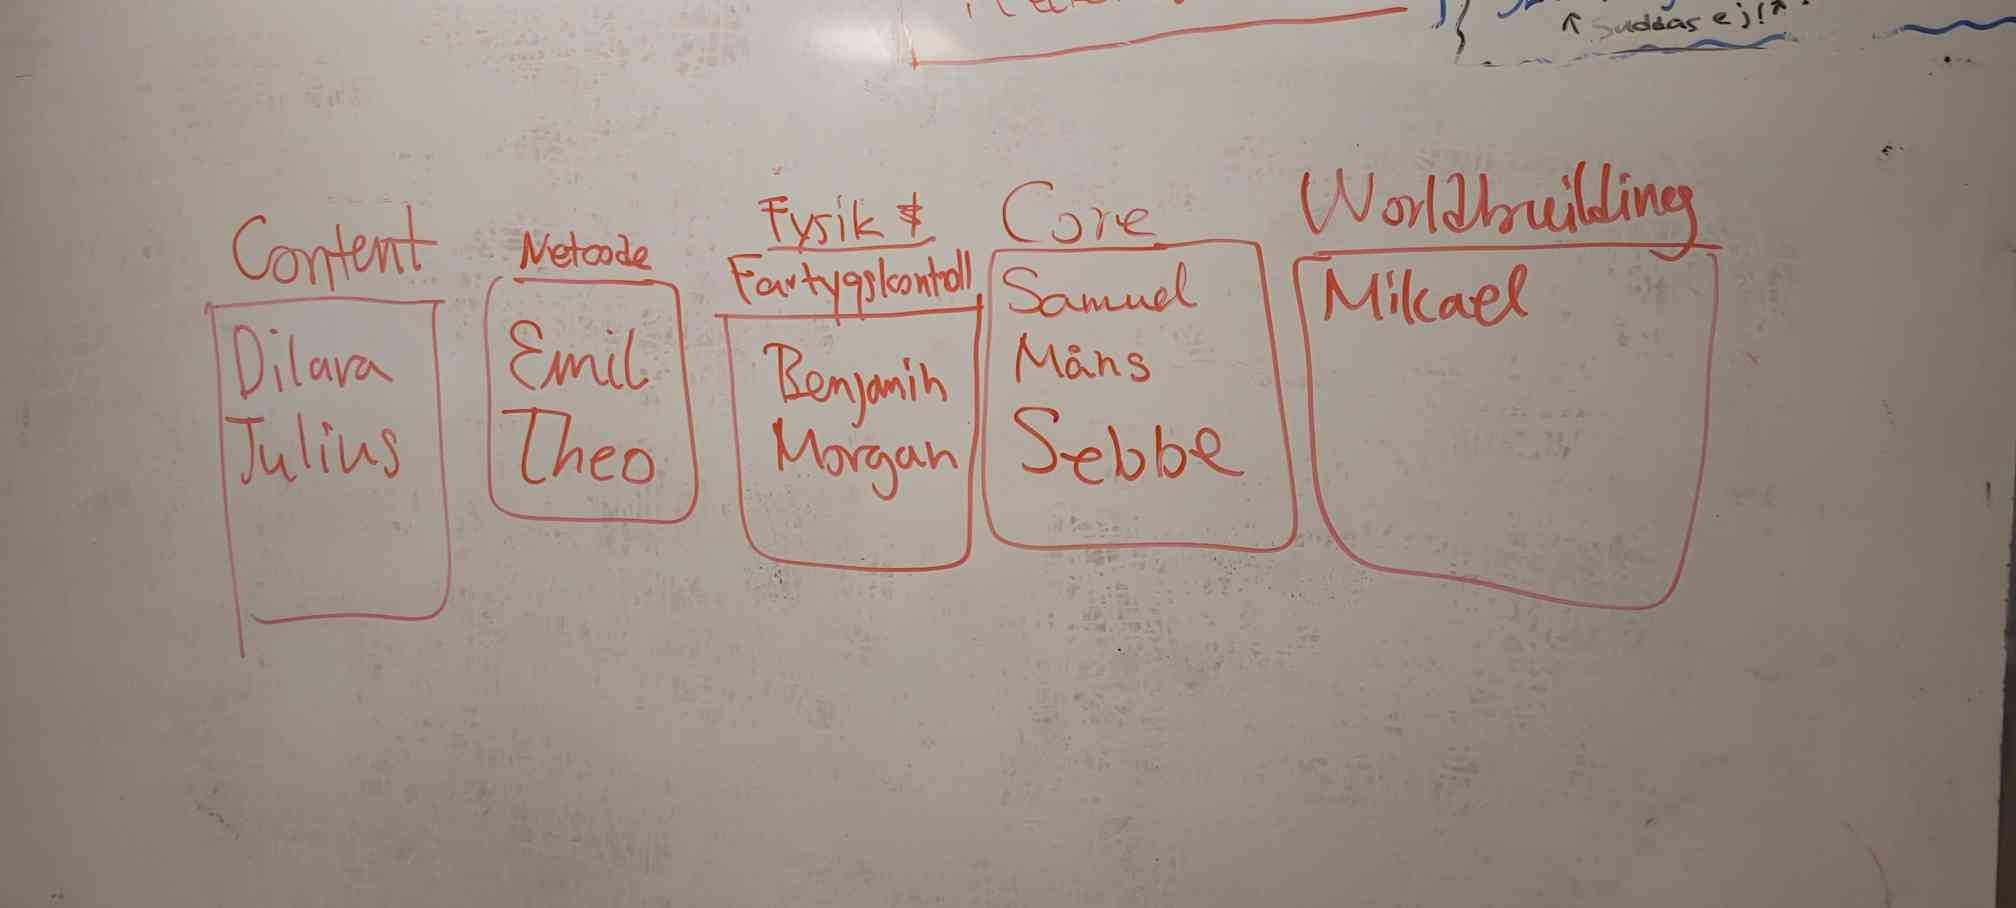 ↑ Suddas ej! ↑
Content
Dilara
Julius
Netcode
Emil
Theo
Fysik &
Fartygskontroll
Benjamin
Morgan
Core
Samuel
Måns
Sebbe
Worldbuilding
Mikael